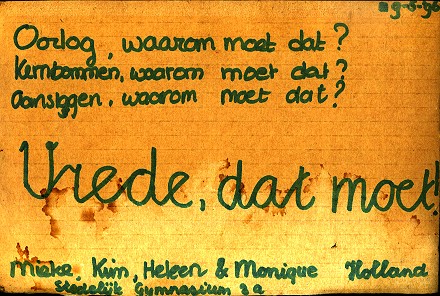 29-5-96
Oorlog, waarom moet dat?
Kernbommen, waarom moet dat?
aanslagen, waarom moet dat?
Vrede, dat moet!
Mieke, Kim, Heleen & Monique Holland
Stedelijk Gymnasium 2a